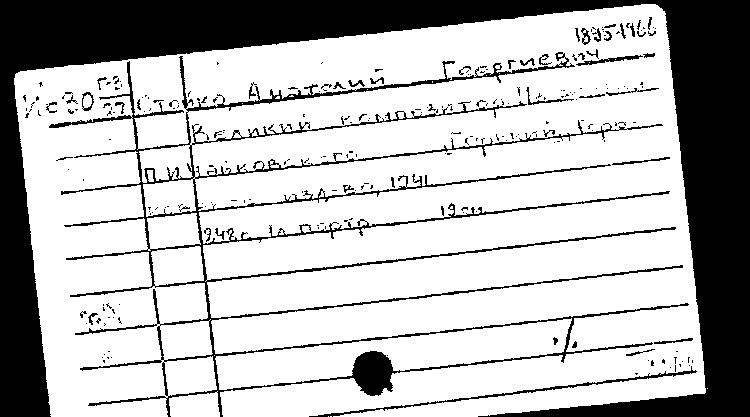 1895-1966
Ис30 Г-3/27 Стойко, Анатолий Георгиевич
Великий композитор.
П.И.Чайковского „Горький“, Горь-
ковское изд-во, 1941
248с, 1л портр 19см